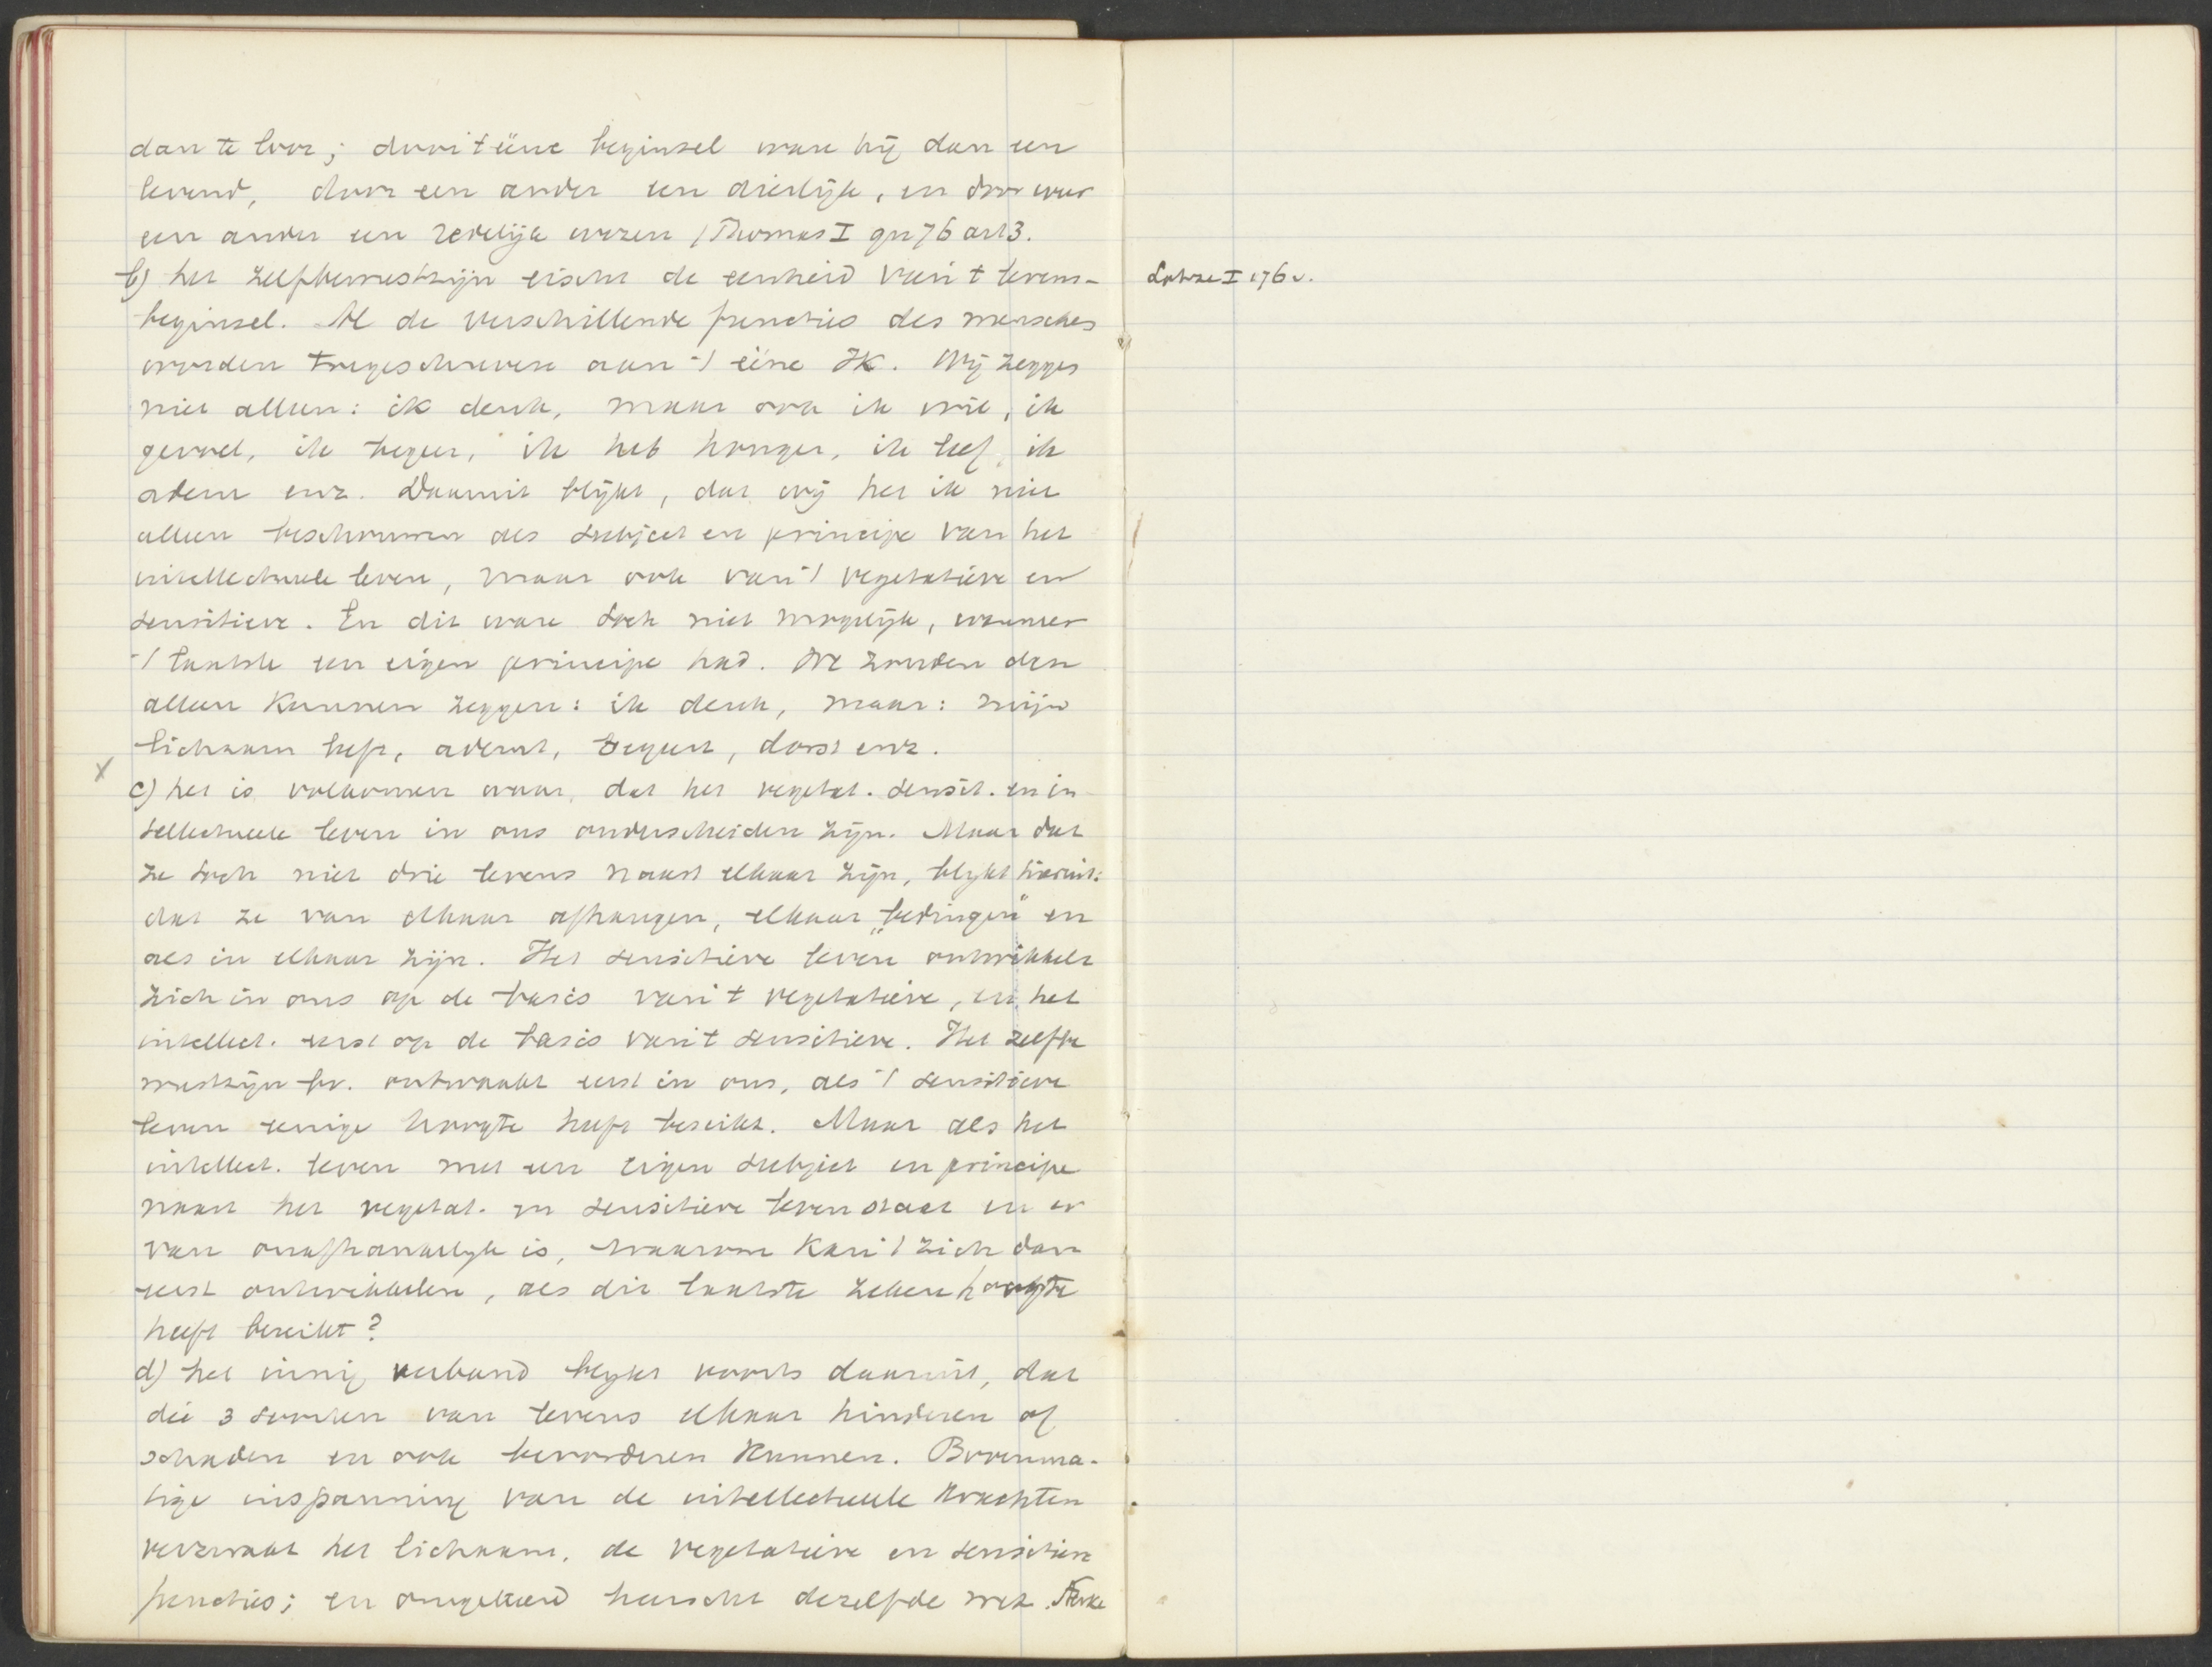 dan te loor; door 't ééne beginsel ware hij dan een
levend, door een ander een dierlijk, en door weer
een ander een redelijk wezen (Thomas I qu 76 art 3.
b) het zelfbewustzijn eischt de eenheid van 't levens-
beginsel. Al de verschillende functies des menschen
worden toegeschreven aan 't ééne Ik. Wij zeggen
niet alleen: ik denk, maar ook ik wil, ik
gevoel, ik begeer, ik heb honger, ik leef, ik
adem enz. Daaruit blijkt, dat wij het ik niet
alleen beschouwen als subject en principe van het
intellectueele leven, maar ook van 't vegetatieve en
sensitieve. En dit ware toch niet mogelijk, wanneer
't laatste een eigen principe had. We zouden dan
alleen kunnen zeggen: ik denk, maar: mijn
lichaam leeft, ademt, begeert, dorst enz.
x
c) het is volkomen waar, dat het vegetat. sensit. en in-
tellectueele leven in ons onderscheiden zijn. Maar dat
ze toch niet drie levens naast elkaar zijn, blijkt hieruit:
dat ze van elkaar afhangen, elkaar „bedingen" en
als in elkaar zijn. Het sensitieve leven ontwikkelt
zich in ons op de basis van 't vegetatieve, en het
intellect. eerst op de basis van 't sensitieve. Het zelfbe
wustzijn bv. ontwaakt eerst in ons, als 't sensitieve
leven eenige hoogte heeft bereikt. Maar als het
intellect. leven met een eigen subject en principe
naast het vegetat. en sensitieve leven staat en er
van onafhankelijk is, waarom kan 't zich dan
eerst ontwikkelen, als dit laatste zekere hoogte
heeft bereikt?
d) het innig verband blijkt voorts daaruit, dat
die 3 soorten van levens elkaar hinderen of
schaden en ook bevorderen kunnen. Bovenma-
tige inspanning van de intellectueele krachten
verzwakt het lichaam, de vegetatieve en sensitieve
functies; en omgekeerd heerscht dezelfde wet. Sterke
Lotze I 176 v.